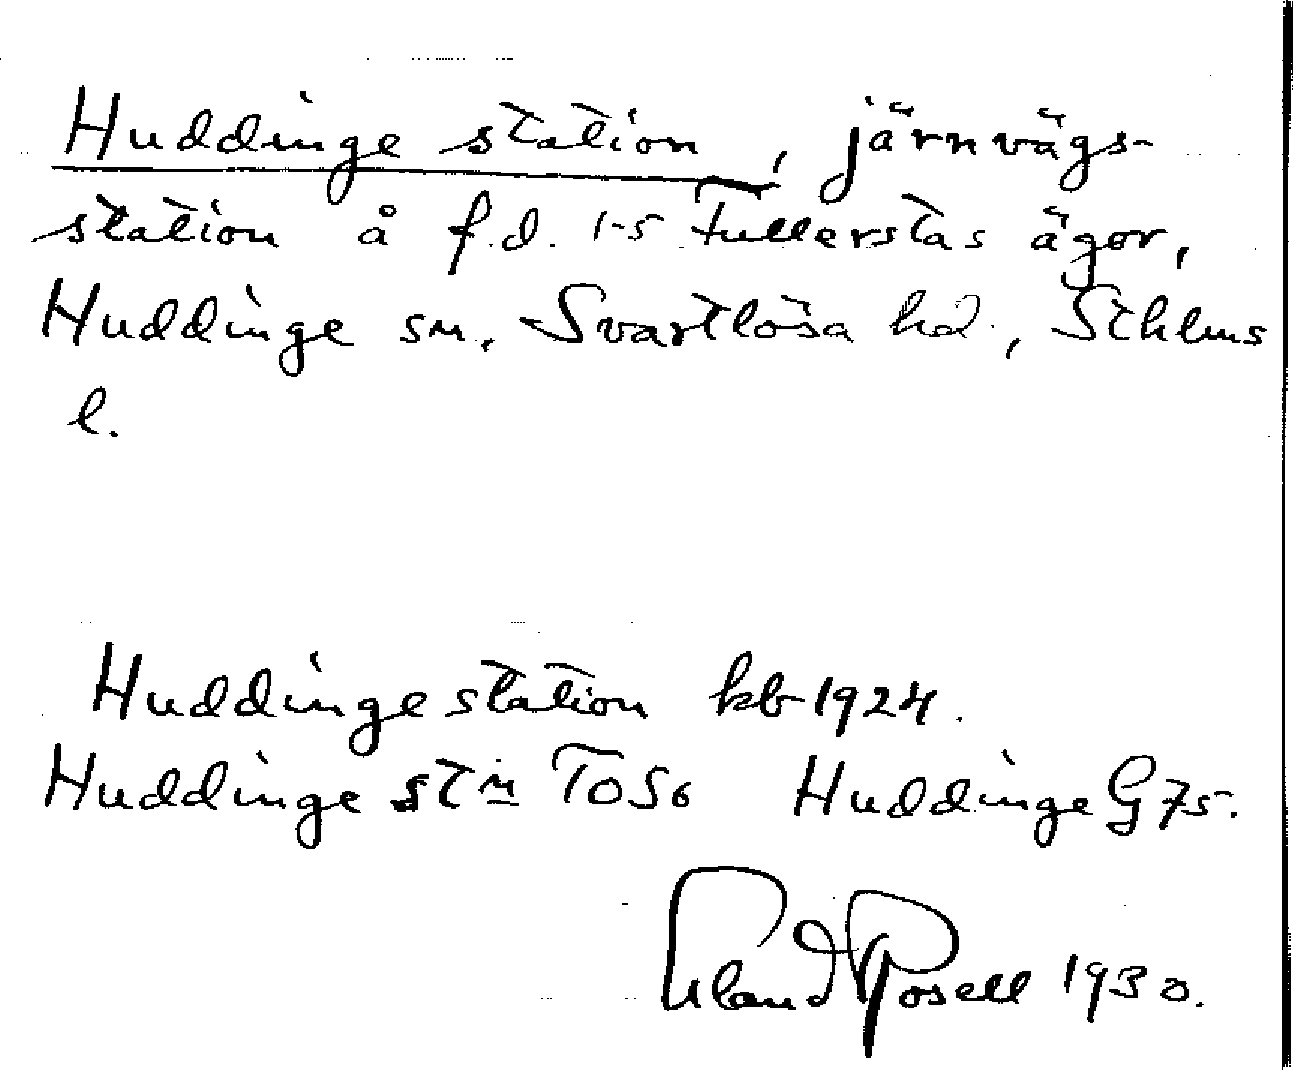 Huddinge station, järnvägs-
station å f.d. 1-5 Fullerstas ägor,
Huddinge sn. Svartlösa hd., Sthlms
l.
Huddinge station kb 1924.
Huddinge stn TOS6 Huddinge G 75.
Erland Rosell 1930.